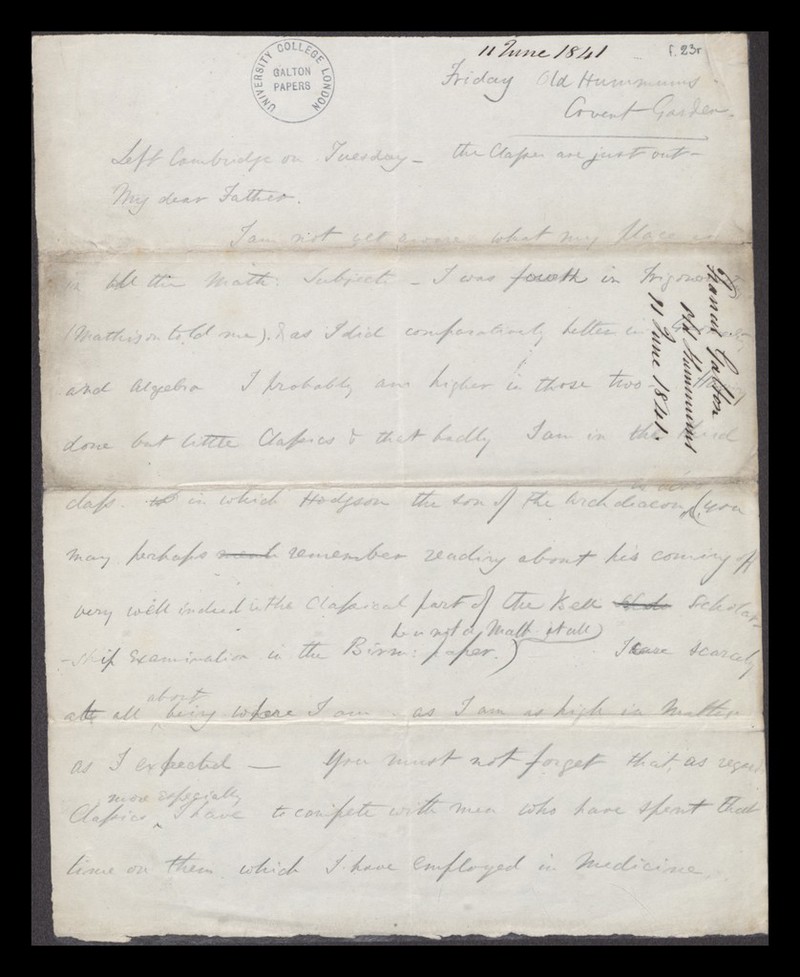 11 June 1841
f. 23r
UNIVERSITY COLLEGE LONDON
GALTON
PAPERS
Friday Old Hummums
Covent Garden.
Left Cambridge on Tuesday – the Classes are just out –
My dear Father.
I am not yet aware what my place is
in all the Math: Subjects – I was fourth in Trigonometry
(Mathison told me). & as I did comparatively better in
and Algebra I probably am higher in those two
done but little Classics & that badly I am in the third
class. in which Hodgson the son of the Archdeacon (you
may perhaps remember reading about his coming off
very well indeed in the Classical part of the Bell Scholar-
he is not a Math at all)
-ship Examination in the Birm: paper.) I care scarcely
about
at all being where I am as I am as high in Math
as I expected – You must not forget that, as regards
more especially
Classics I have to compete with men who have spent that
time on them which I have employed in Medicine.
Francis Galton
Old Hummums
11 June 1841.